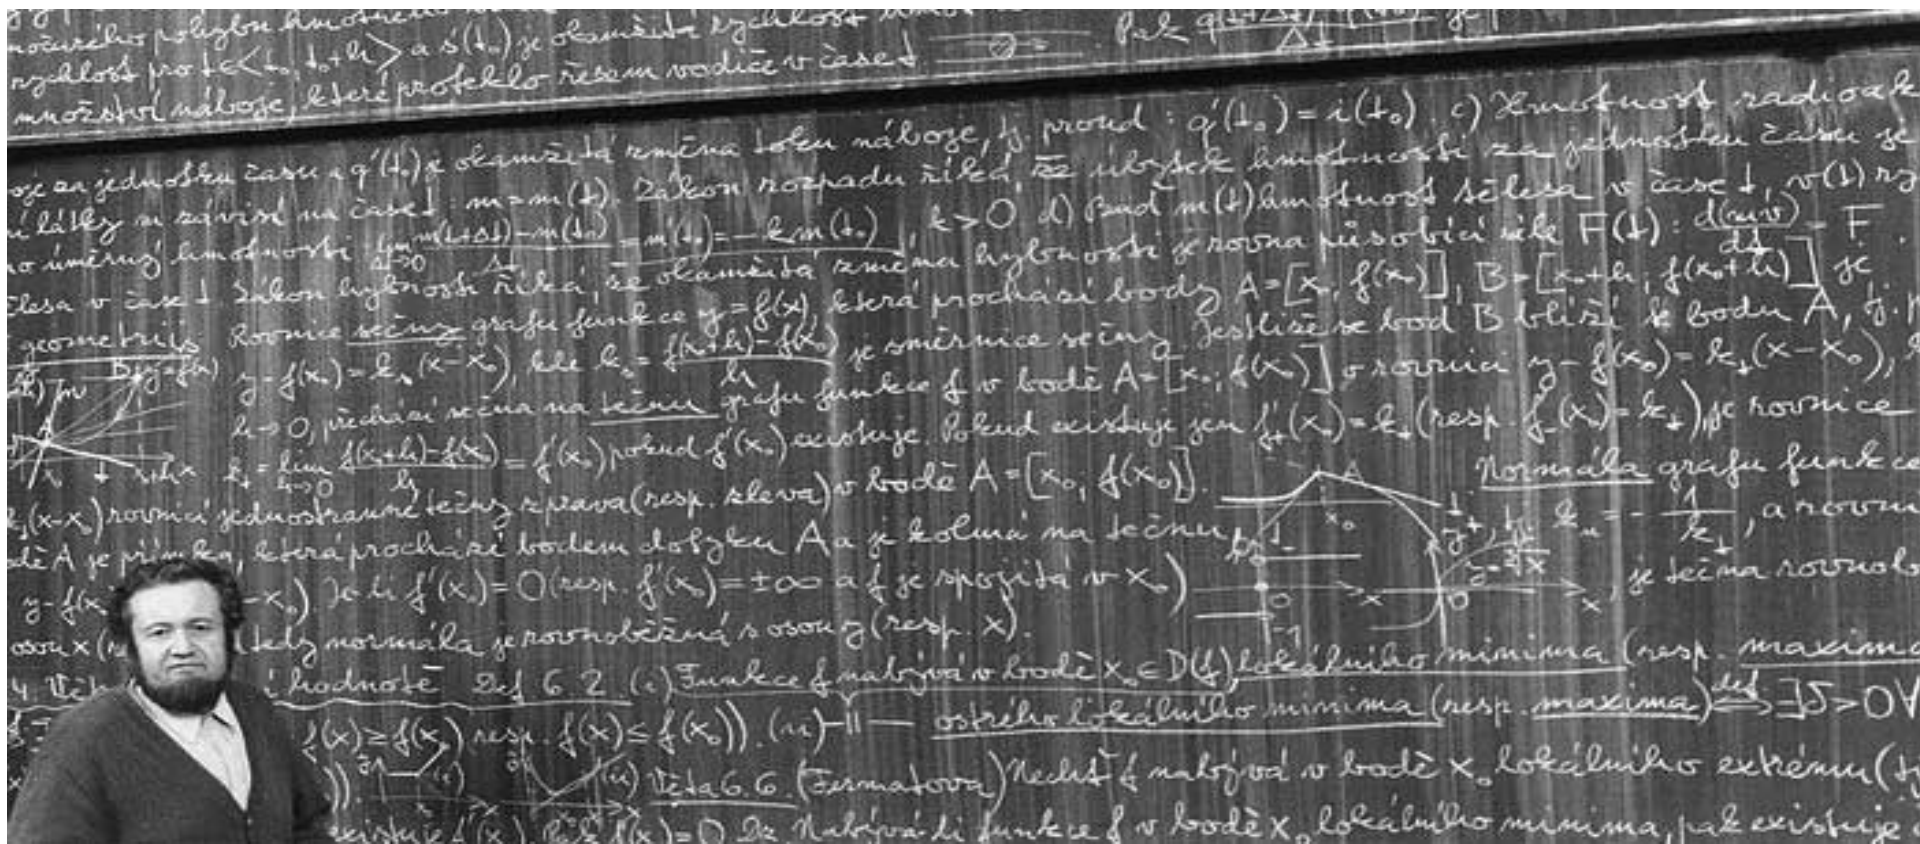 rychlost pro t∈<t₀, t₀+h> a s'(t₀) je okamžitá rychlost
množství náboje, které proteklo řezem vodiče v čase t
oje za jednotku času a q'(t₀) je okamžitá změna toku náboje, tj. proud : q'(t₀) = i(t₀). c) Hmotnost radioak
ní látky m závisí na čase t : m = m(t). Zákon rozpadu říká, že úbytek hmotnosti za jednotku času je
no úměrný hmotnosti lim Δt→0 m(t₀+Δt)-m(t₀) / Δt = m'(t₀) = -km(t₀), k > 0 d) Buď m(t) hmotnost tělesa v čase t, v(t) ry
ělesa v čase t. Zákon hybnosti říká, že okamžitá změna hybnosti je rovna působící síle F(t) : d(mv)/dt = F.
geometrii Rovnice sečny grafu funkce y = f(x), která prochází body A = [x₀, f(x₀)], B = [x₀+h, f(x₀+h)] je
y-f(x₀) = kₛ(x-x₀), kde kₛ = f(x₀+h)-f(x₀) / h je směrnice sečny. Jestliže se bod B blíží k bodu A, tj. p
h→0, přechází sečna na tečnu grafu funkce f v bodě A = [x₀; f(x₀)] o rovnici y-f(x₀) = kₜ(x-x₀),
kₜ = lim h→0 f(x₀+h)-f(x₀) / h = f'(x₀) pokud f'(x₀) existuje. Pokud existuje jen f'₊(x₀) = kₜ (resp. f'₋(x₀) = kₜ), je rovnice
kₜ(x-x₀) rovnicí jednostranné tečny zprava (resp. zleva) v bodě A = [x₀; f(x₀)]. Normála grafu funkce
odě A je přímka, která prochází bodem dotyku A a je kolmá na tečnu, tj. kₙ = -1/kₜ, a rovni
y-f(x -x₀). Je-li f'(x₀) = 0 (resp. f'(x₀) = ±∞ a f je spojitá v x₀) je tečna rovnob
osou x ( tedy normála je rovnoběžná s osou y (resp. x).
4. Vět í hodnotě Def 6.2 (i) Funkce f nabývá v bodě x₀ ∈ D(f) lokálního minima (resp. maxima
f(x) ≥ f(x₀) resp. f(x) ≤ f(x₀)). (ii) -||- ostrého lokálního minima (resp. maxima) def ⟺ ∃δ>0∀
Věta 6.6. (Fermatova) Nechť f nabývá v bodě x₀ lokálního extrému (tj
existuje f'(x₀). Pak f'(x₀) = 0 Dk. Nabývá-li funkce f v bodě x₀ lokálního minima, pak existuje